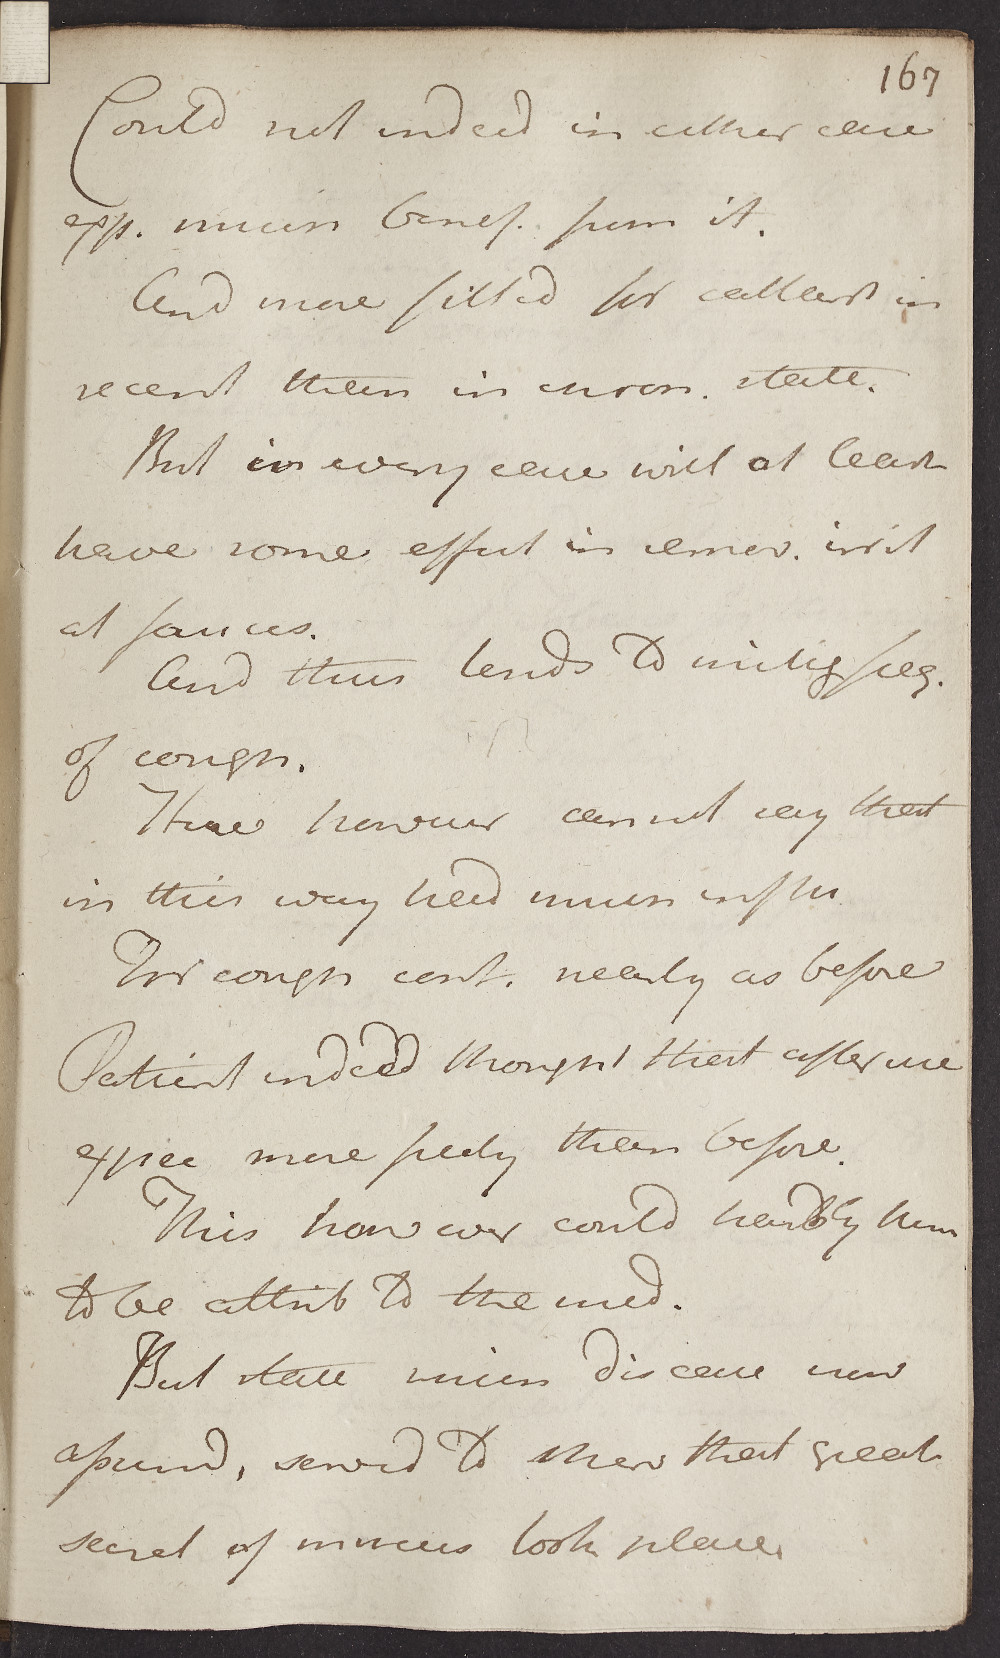 167
Could not indeed in either case
exp. much benef. from it.
And more fitted for catharr in
recent than in chron. state.
But in every case will at least
have some effect in remov. irrit
at fauces.
And thus tends to mitig freq.
of cough.
Here however cannot say that
in this way had much influ
For cough cont. nearly as before
Patient indeed thought that after use
expec more freely than before.
This however could hardly
to be attrib to the med.
But state which disease now
assumd, servd to shew that great
secret of mucus took place